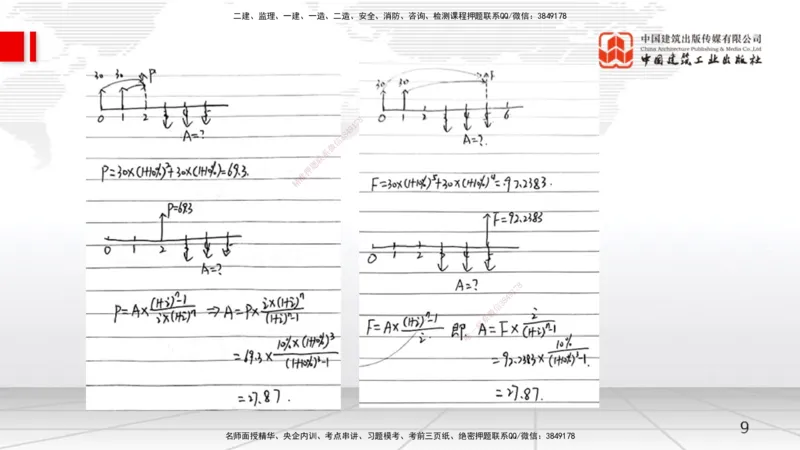 二建、监理、一建、一造、二造、安全、消防、咨询、检测课程押题联系QQ/微信：3849178
中国建筑出版传媒有限公司
China Architecture Publishing & Media Co.,Ltd
中国建筑工业出版社
30 30 P
0 1 2 3 4 5
A=?
P=30×(1+10%)²+30×(1+10%)=69.3.
P=69.3
0 1 2 3 4 5
A=?
P=A×\frac{(1+i)^n-1}{i×(1+i)^n} ⇒ A=P×\frac{i×(1+i)^n}{(1+i)^n-1}
=69.3×\frac{10%×(1+10%)^3}{(1+10%)^3-1}
=27.87.
30 30 F
0 1 2 3 4 5 6
A=?.
F=30×(1+10%)^5+30×(1+10%)^4=92.2383.
F=92.2383
0 1 2 3 4 5
A=?
F=A×\frac{(1+i)^n-1}{i} 即 A=F×\frac{i}{(1+i)^n-1}
=92.2383×\frac{10%}{(1+10%)^3-1}.
=27.87.
9
名师面授精华、央企内训、考点串讲、习题模考、考前三页纸、绝密押题联系QQ/微信：3849178